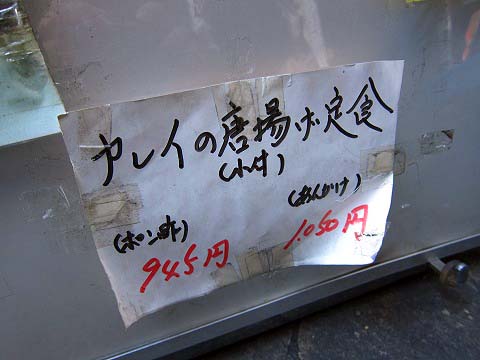 カレイの唐揚げ定食
(小付)
(ポン酢) (あんかけ)
945円 1.050円